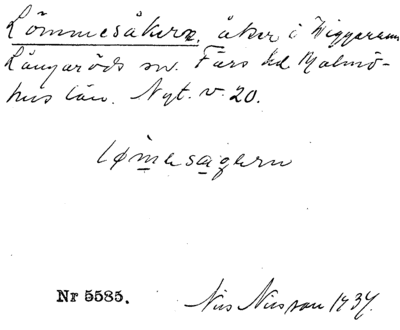 Lömmesåkern, åker i Wiggarum
Långaröds sn. Färs hd. Malmö-
hus län. Nyt. v. 20.
lømesagern
Nr 5585.
Nils Nilsson 1937.